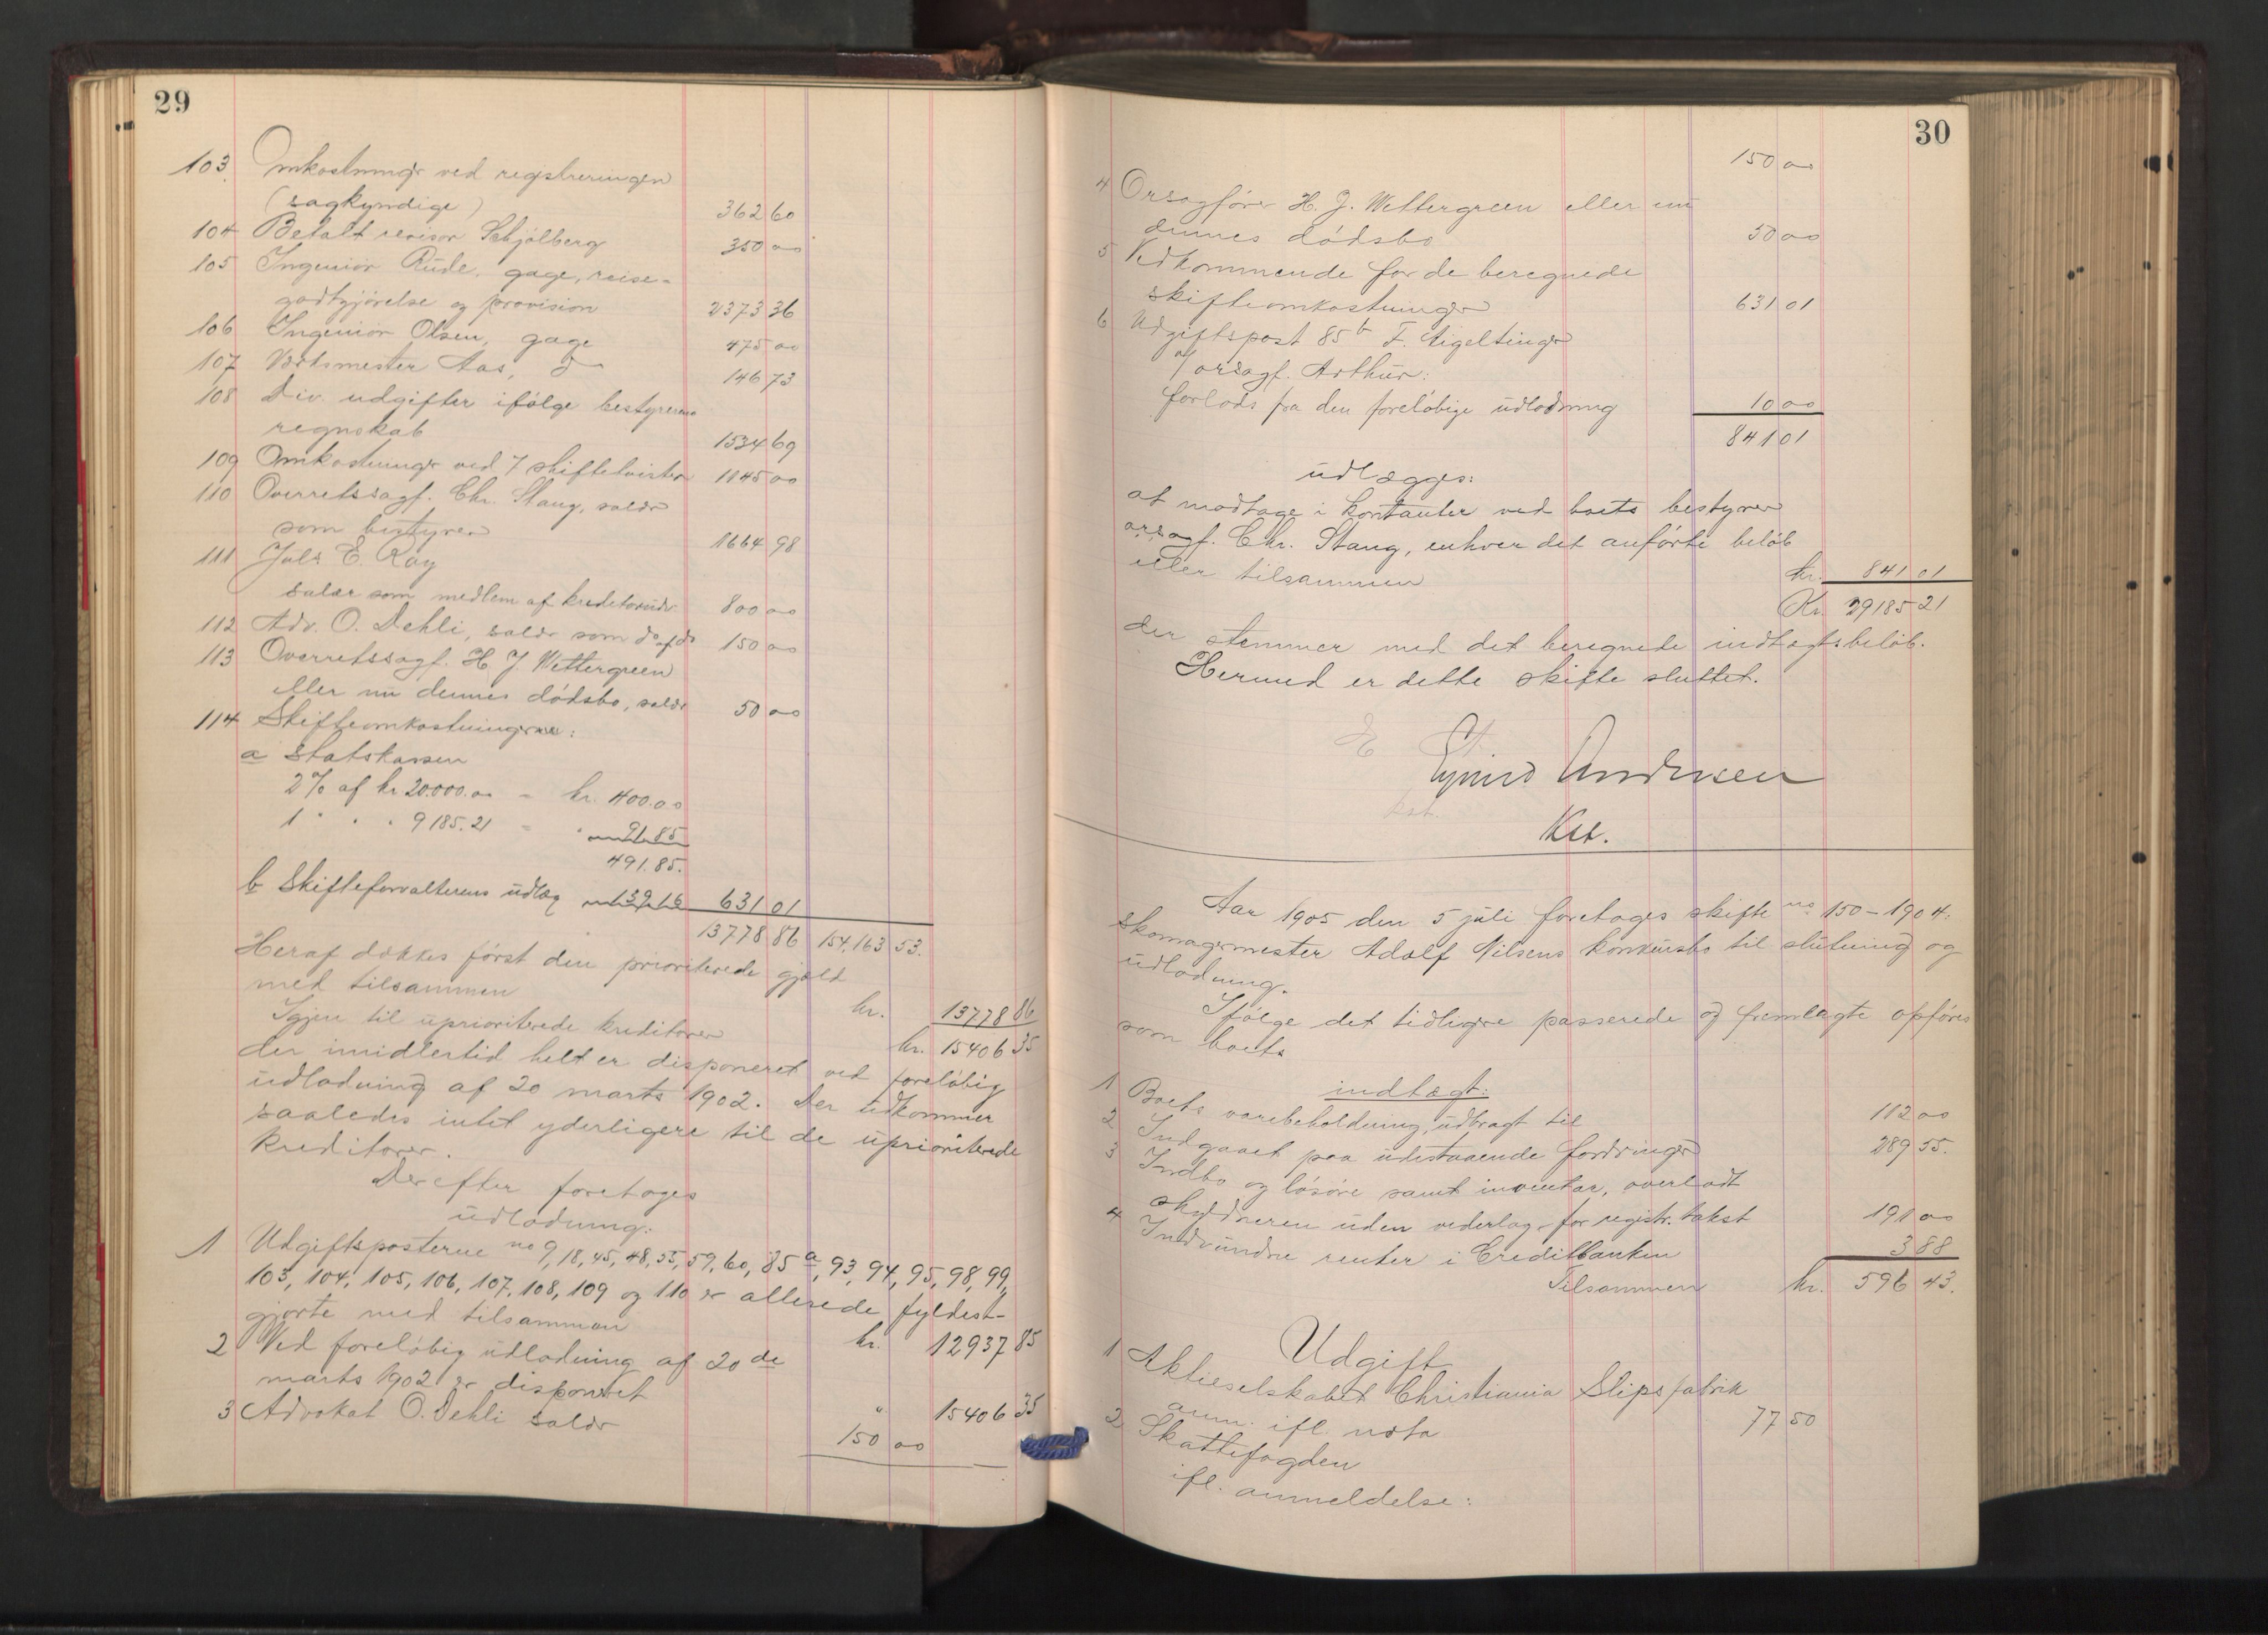 29
103. Omkostninger ved registreringen
(sagkyndige) 362 60
104 Betalt revisor Schjølberg 350 00
105 Ingeniør Rude, gage, reise-
godtgjørelse og provision 2373 36
106 Ingeniør Olsen, gage 475 00
107 Værksmester Aas, do 146 73
108 Div. udgifter ifølge bestyrerens
regnskab 1534 69
109 Omkostninger ved 7 skiftetvister 1145 00
110 Overretssagf. Chr. Stang, salær
som bestyrer 1664 98
111 Juls E. Roy
salær som medlem af kreditorudv. 800 00
112 Adv. O. Dehli, salær som do af do 150 00
113 Overretssagf. H J Wettergreen
eller nu dennes dødsbo, salær 50 00
114 Skifteomkostningerne:
a Statskassen
2 % af kr 20.000.00 - kr. 400.00
1 " " " 9185.21 - " 91.85
491.85.
b Skifteforvalterens udlæg 139.16 631 01
13778 86 154.163 53.
Heraf dækkes først den prioriterede gjæld
med tilsammen kr. 13778 86
Igjen til uprioriterede kreditorer kr. 15406 35
der imidlertid helt er disponeret ved foreløbig
udlodning af 20 marts 1902. Der udkommer
saaledes intet yderligere til de uprioriterede
kreditorer.
Derefter foretages
udlodning:
1 Udgiftsposterne no 9, 18, 45, 48, 55, 59, 60, 85 a, 93, 94, 95, 98, 99,
103, 104, 105, 106, 107, 108, 109 og 110 er allerede fyldest-
gjorte med tilsammen kr. 12937 85
2 Ved foreløbig udlodning af 20 de
marts 1902 er disponeret " 15406 35
3 Advokat O. Dehli salær 150 00
30
150 00
4 Orsagfører H. J. Wettergreen eller nu
dennes dødsbo 50 00
5 Vedkommende for de beregnede
skifteomkostninger 631 01
6 Udgiftspost 85 b F. Aigeltinger
v/ orsagf. Arthur:
forlods fra den foreløbige udlodning 10 00
841 01
udlægges:
at modtage i kontanter ved boets bestyrer
orsagf. Chr. Stang, enhver det anførte beløb
eller tilsammen kr. 841 01
Kr. 29185 21
der stemmer med det beregnede indtægtsbeløb.
Hermed er dette skifte sluttet.
Eyvind Andersen
Kst.
Aar 1905 den 5 juli foretages skifte no 150-1904:
Skomagermester Adolf Nilsens konkursbo til slutning og
udlodning.
Ifølge det tidligere passerede og fremlagte opføres
som boets
indtægt:
1 Boets varebeholdning, udbragt til 112 00
2 Indgaaet paa udestaaende fordringer 289 55.
3 Indbo og løsøre samt inventar, overladt
skyldneren uden vederlag - for registr. takst 191 00
4 Indvundne renter i Creditbanken 3 88
Tilsammen kr. 596 43.
Udgift
1 Aktieselskabet Christiania Slipsfabrik
anm. ifl. nota 77 50
2 Skattefogden
ifl. anmeldelse: